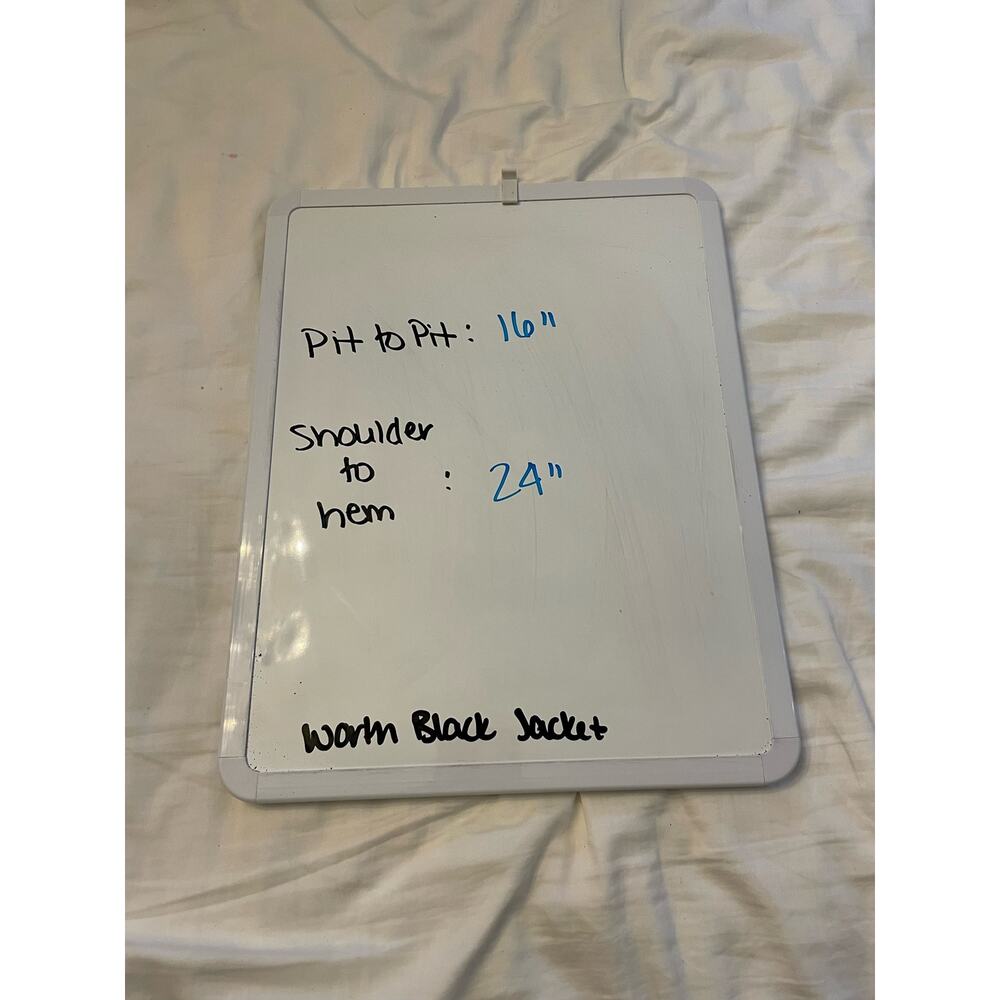 Pit to Pit: 16"
Shoulder
to
: 24"
hem
Worth Black Jacket